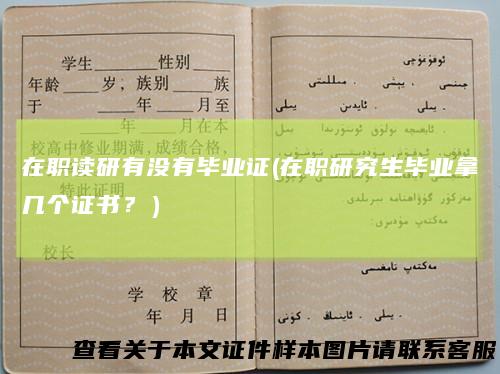 学生______性别____
年龄____岁，族别____族
于______年____月至
______年____月在本
校高中修业期满，成绩合格，
特此证明
校长
学 校 章
年 月 日
ئوقۇغۇچى
جىنسى . يېشى . مىللىتى
يىلى . ئايدىن يىلى
مەكتەپ مۇدىرى .
مەكتەپ تامغىسى
. يىلى . ئاينىڭ . كۈنى
在职读研有没有毕业证(在职研究生毕业拿
几个证书？）
查看关于本文证件样本图片请联系客服